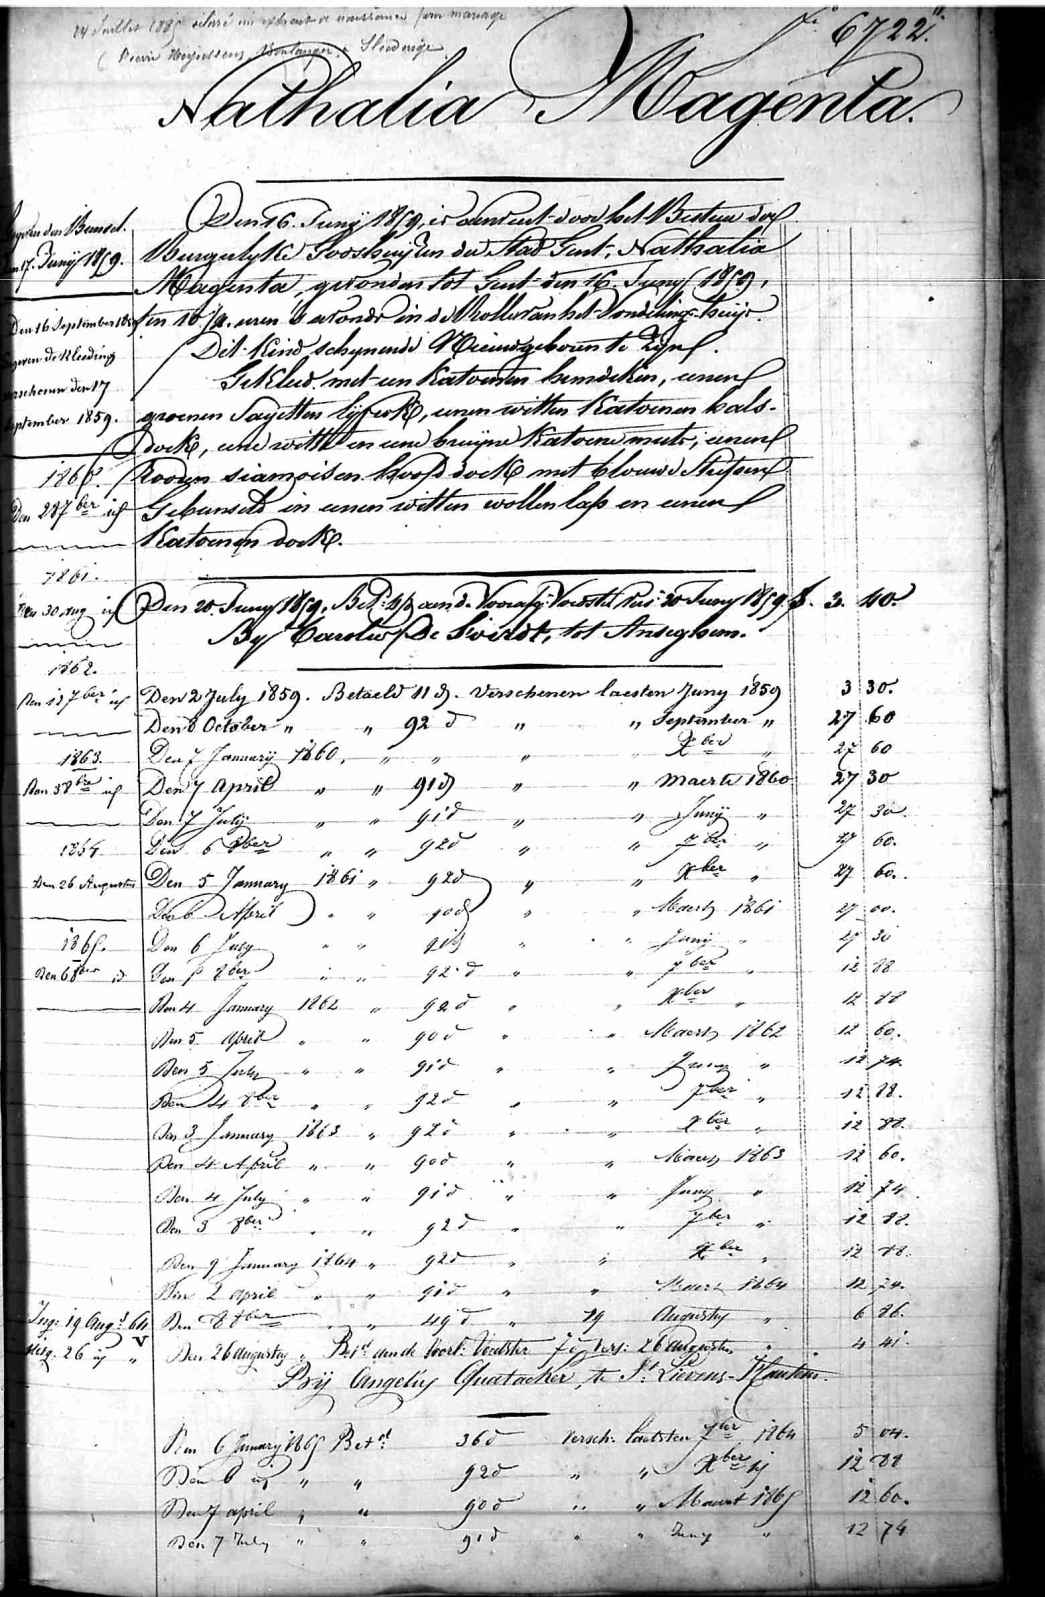 24 Juillet 1885 délivré un extrait de naissance pour mariage
( Pierre Heyvelsens, Boulanger à Sleidinge
N° 6722.
Nathalia Magenta.
den Bunsel.
17. Junij 1859.
Den 16 September 1859
de kleeding
verschenen den 17
September 1859.
1860.
Den 28 7ber id
1861.
Den 30 aug id
1862.
Den 13 7ber id
1863.
Den 3 8bre id
1864
Den 26 Augustus
1865.
Den 6 8ber id
Den 16. Junij 1859, is door het Bestier der
Burgerlyke Godshuyzen der Stad Gent, Nathalia
Magenta, gevonden tot Gent den 16 Juny 1859,
ten 10 1/2 uren 's avonds in de Rolle van het Vondelings-huijs.
Dit Kind schynende Nieuwgeboren te Zyn.
Gekleed met een Katoenen hemdeken, eenen
groenen Sayetten lyfrok, eenen witten Katoenen hals-
doek, eene witte en eene bruyne Katoene muts, eenen
rooden siamoisen Hoofddoek met blauwe Streepen
Gebunseld in eenen witten wollen lap en eenen
Katoenen doek.
Den 20 Juny 1859, Bet. aen d. Voorsz. Voedst. 30 Juny 1859 f. 3. 40.
By Carolus De Coird, tot Anseghem.
Den 2 July 1859. Betaeld 11 d. verschenen laesten Juny 1859 3 30.
Den 8 October " " 92 d " " September " 27 60
Den 7 January 1860, " " " Xber " 27 60
Den 7 April " " 91 d " " Maerte 1860 27 30
Den 7 July " " 91 d " " Junij " 27 30
Den 6 8ber " " 92 d " " 7ber " 27 60.
Den 5 January 1861 " 92 d " " Xber " 27 60.
Den 6 April " " 90 d " " Maert 1861 27 00.
Den 6 July " " 91 d " " Junij " 27 30
Den 5 8ber " " 92 d " " 7ber " 12 88
Den 4 January 1862 " 92 d " " Xber " 12 88
Den 5 April " " 90 d " " Maert 1862 12 60.
Den 5 July " " 91 d " " Juny " 12 74.
Den 4 8ber " " 92 d " " 7ber " 12 88.
Den 3 January 1863 " 92 d " " Xber " 12 88.
Den 4 April " " 90 d " " Maert 1863 12 60.
Den 4 July " " 91 d " " Juny " 12 74.
Den 3 8ber " " 92 d " " 7ber " 12 88.
Den 9 January 1864 " 92 d " " Xber " 12 88.
Den 2 april " " 91 d " " Maert 1864 12 74.
Ing: 19 Augt 64
Den 8 8ber " " 49 d " 19 Augusty " 6 86.
26 id "
Den 26 augusty " Bet. aen de Voort. Voedster 7 d vers: 26 Augustus " 4 41.
Bij Angelus Quatacker, te St Lievens-Hautem.
Den 6 January 1865 Betd 36 d versch: laetsten 7ber 1864 5 04.
Den 6 id " " 92 d " " Xber id 12 88
Den 7 april " " 90 d " " Maert 1865 12 60.
Den 7 July " " 91 d " " Juny " 12 74